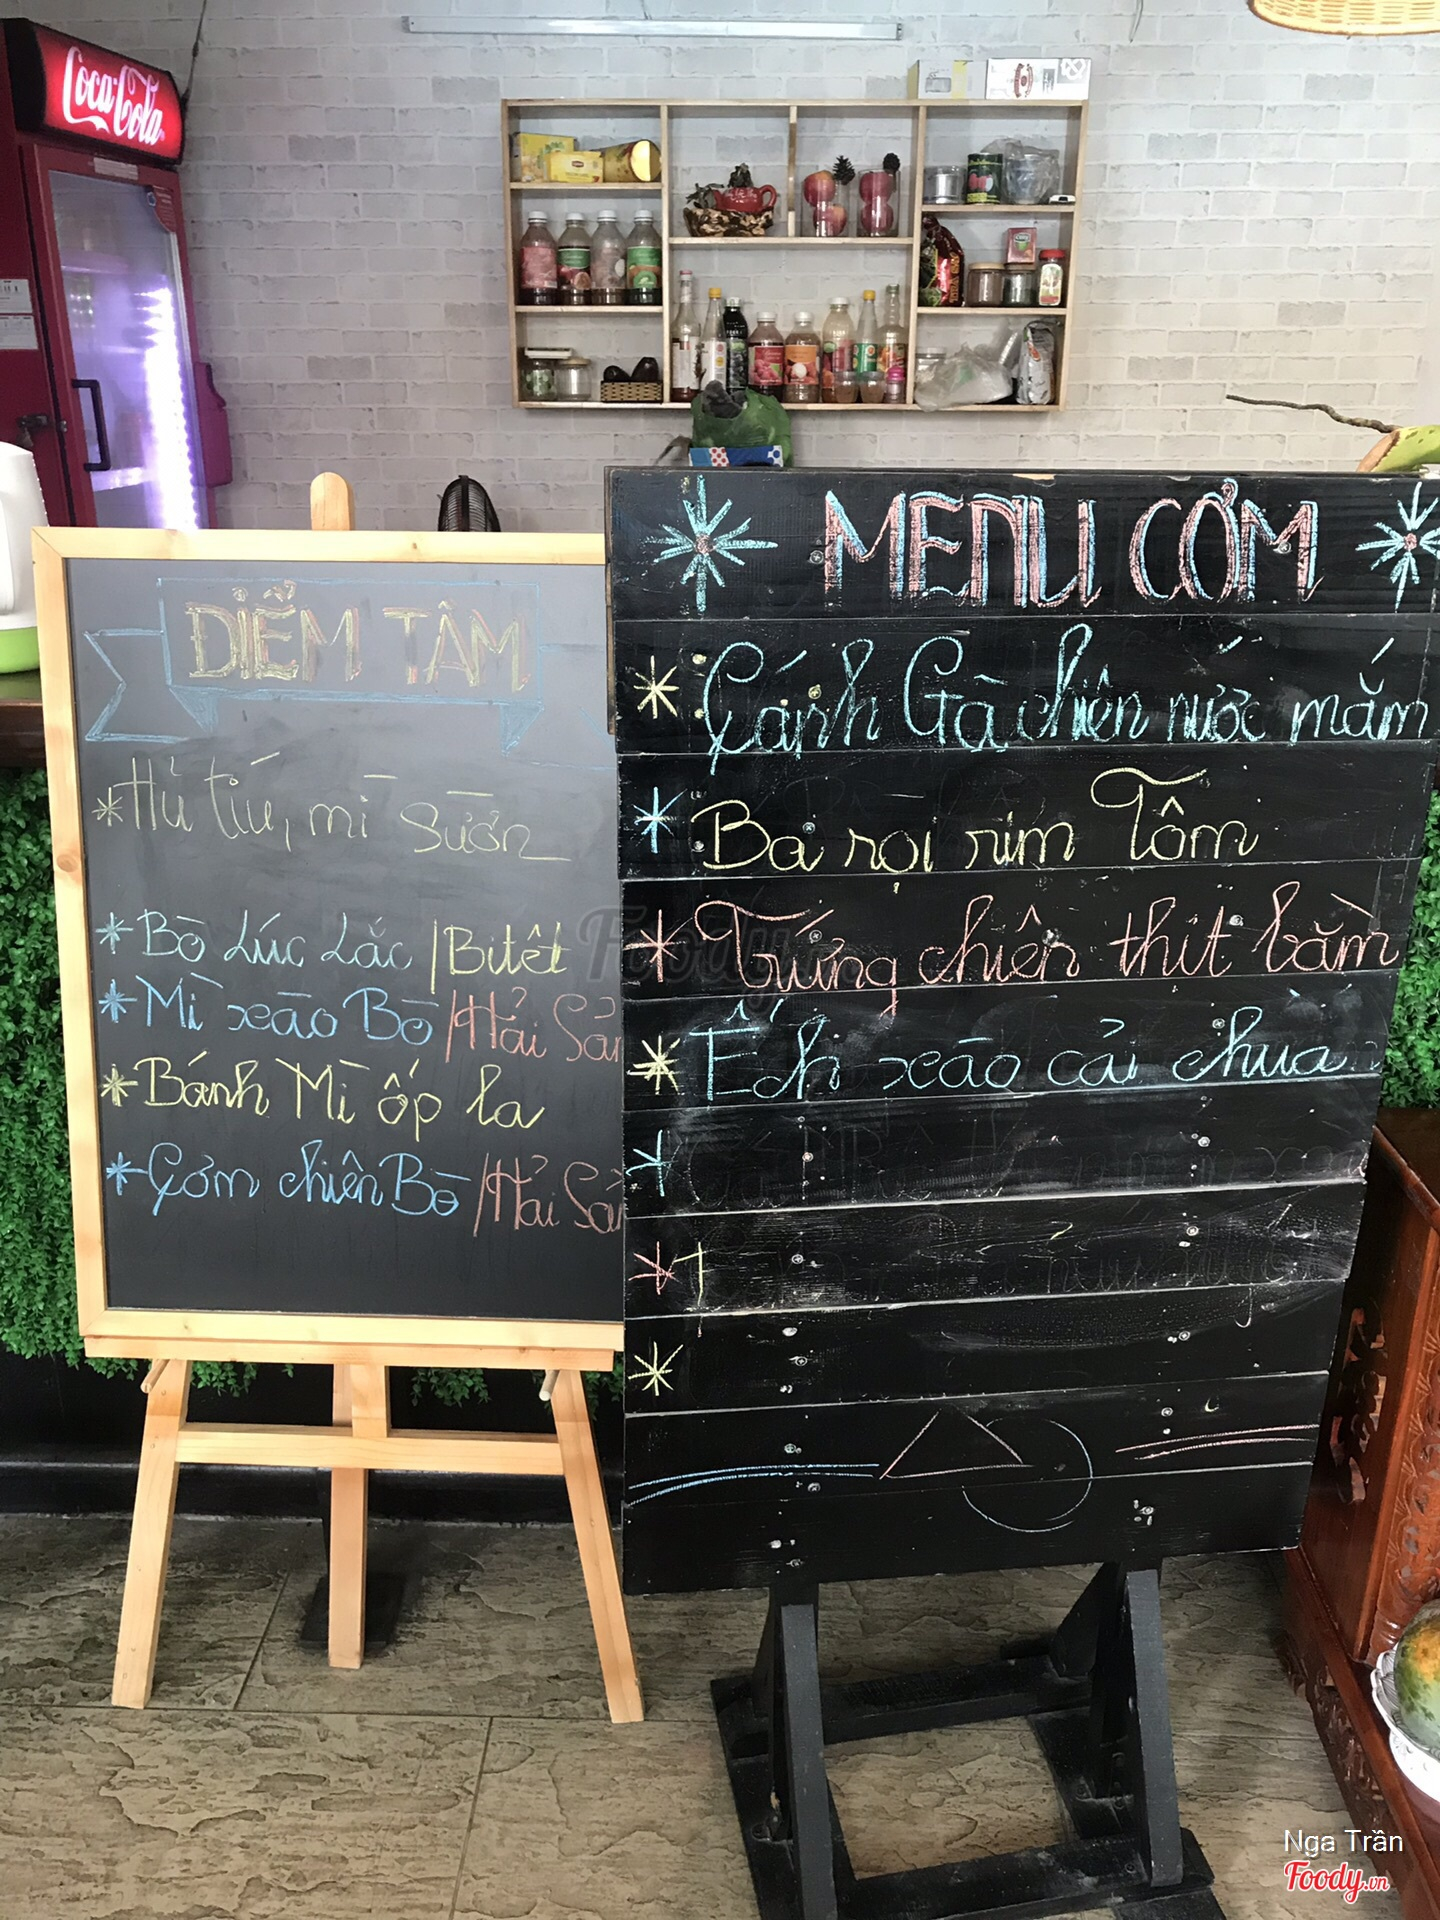 Coca-Cola
ĐIỂM TÂM
Hủ tíu, mì Sườn
Bò Lúc Lắc / Bitêt
Mì xào Bò / Hải Sản
Bánh Mì ốp la
Cơm chiên Bò / Hải Sản
MENU CƠM
Cánh Gà chiên nước mắm
Ba rọi rim Tôm
Trứng chiên thịt bằm
Ếch xào cải chua
Foody.vn
Nga Trần
Foody.vn